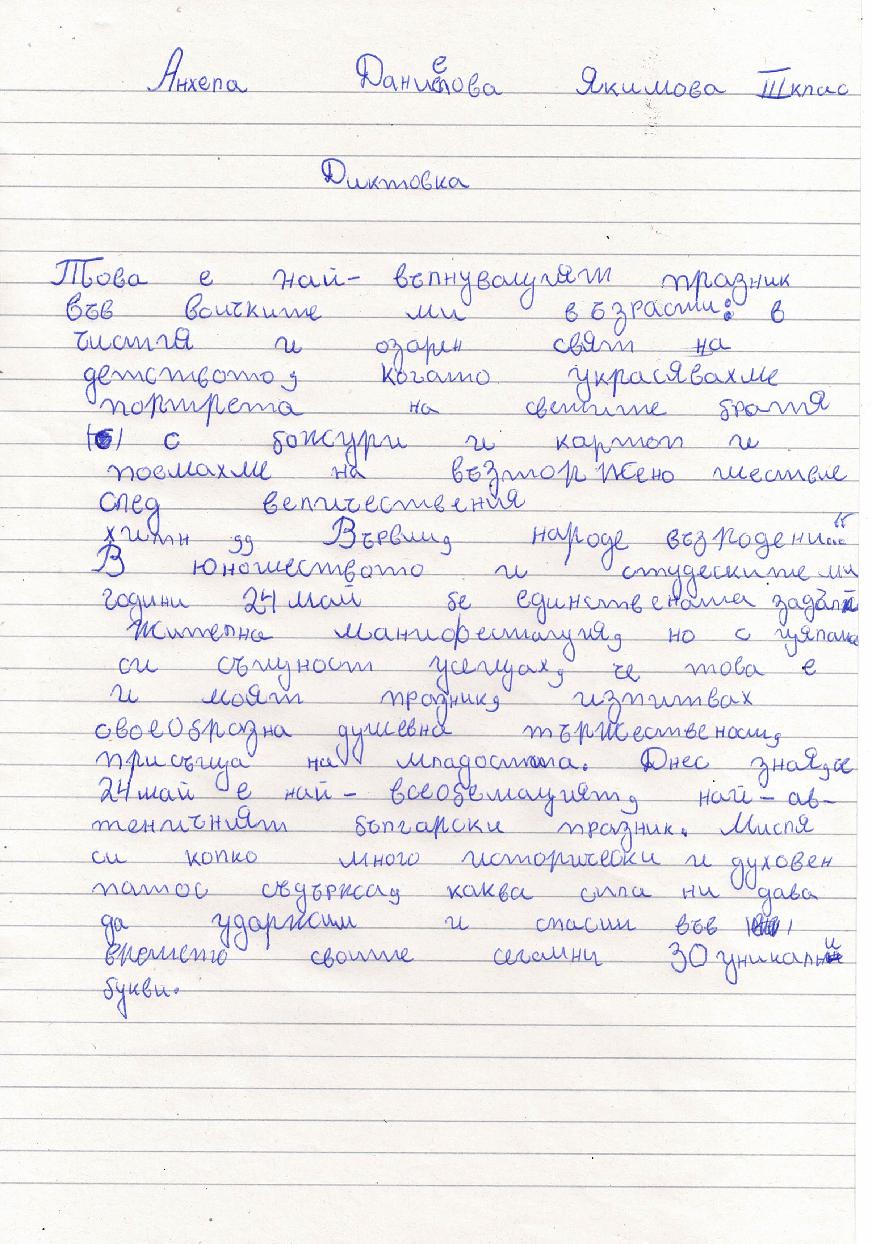 Анхела Даниелова Якимова III клас
Диктовка
Това е най- вълнувалуият празник
във всичките ми възрасти: в
чистия и озарен свят на
детството, когато украсявахме
портрета на светите братя
с божури и картон и
поемахме на възторжено шествие
след величествения
химн ,, Върви, народе възродени"
В юношеството и студеските ми
години 24 май бе единствената задъл
жителна манифестация, но с цялата
си същност усещах, че това е
и моят празник, изпитвах
своеобразна душевна тържественост,
присъща на младостта. Днес зная, че
24 май е най- всеобемащият, най- ав-
тентичният български празник. Мисля
си колко много исторически и духовен
патос съдържа, каква сила ни дава
да удържим и спасим във
времето своите сегашни 30 уникални
букви.